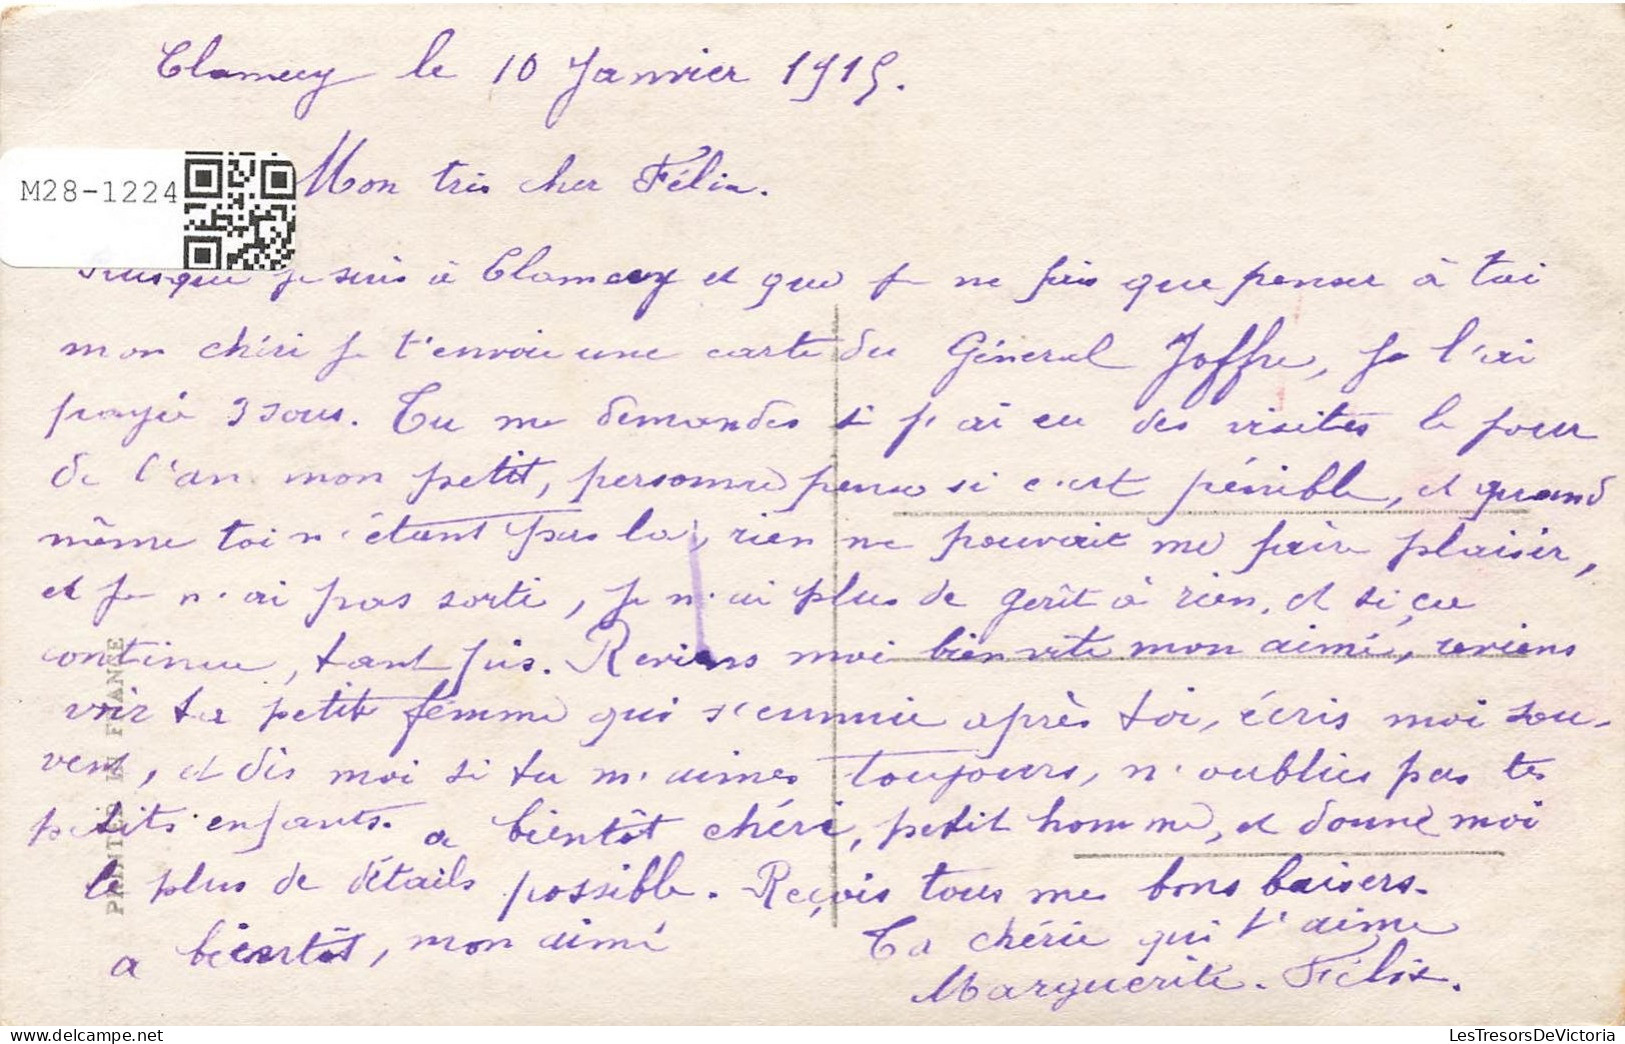 Clamecy le 10 Janvier 1915.
M28-1224
Mon très cher Félix.
Puisque je suis à Clamecy et que je ne fais que penser à toi
mon chéri je t'envoie une carte du Général Joffre, je l'ai
payée 3 sous. Tu me demandes si j'ai eu des visites le jour
de l'an mon petit, personne pense si c'est pénible, et quand
même toi n'étant pas la, rien ne pouvait me faire plaisir,
et je n'ai pas sorti, je n'ai plus de goût à rien, et si ça
continue, tant pis. Reviens moi bien vite mon aimé, reviens
voir ta petite femme qui s'ennuie après toi, écris moi sou-
vent, et dis moi si tu m'aimes toujours, n'oublies pas tes
petits enfants. a bientôt chéri, petit homme, et donne moi
le plus de détails possible. Reçois tous mes bons baisers.
a bientôt, mon aimé
Ta chérie qui t'aime
Marguerite. Félix.
PRINTED IN FRANCE
LesTresorsDeVictoria